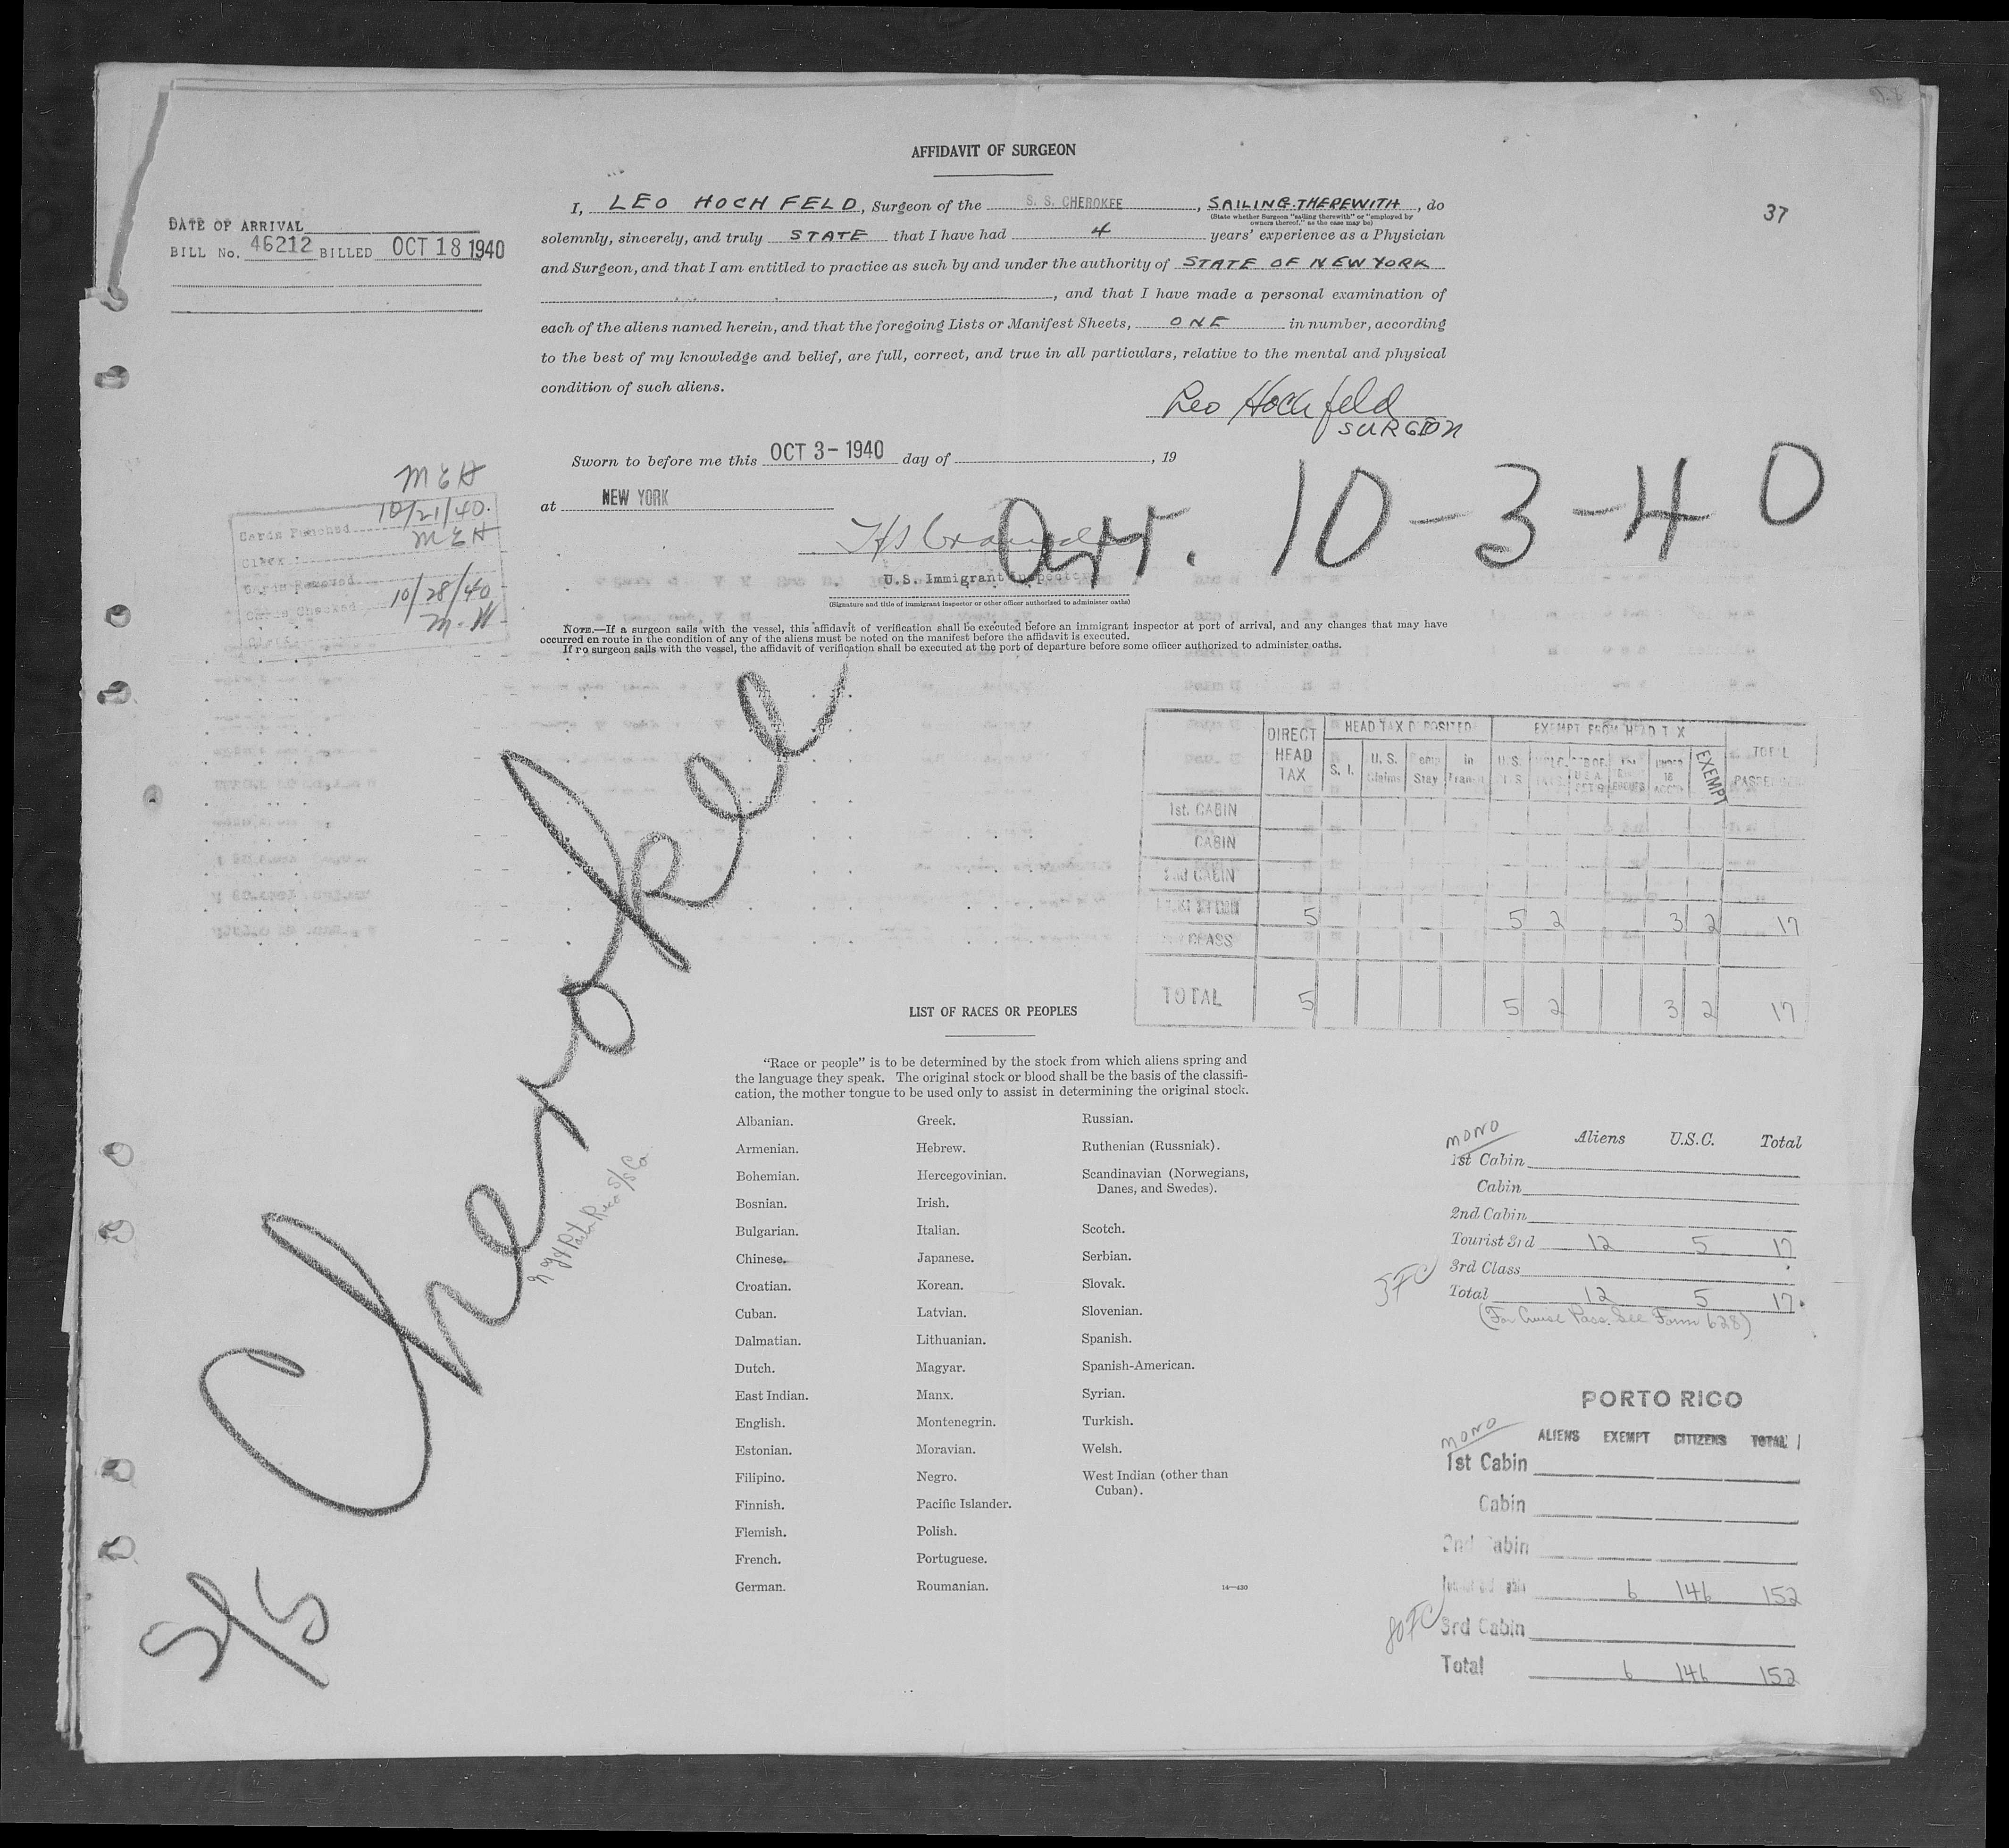 AFFIDAVIT OF SURGEON
37
DATE OF ARRIVAL
BILL No. 46212 BILLED OCT 18 1940
I, LEO HOCHFELD, Surgeon of the S. S. CHEROKEE, SAILING THEREWITH, do
(State whether Surgeon "sailing therewith" or "employed by
owners thereof," as the case may be)
solemnly, sincerely, and truly STATE that I have had 4 years' experience as a Physician
and Surgeon, and that I am entitled to practice as such by and under the authority of STATE OF NEW YORK
, and that I have made a personal examination of
each of the aliens named herein, and that the foregoing Lists or Manifest Sheets, ONE in number, according
to the best of my knowledge and belief, are full, correct, and true in all particulars, relative to the mental and physical
condition of such aliens.
Leo Hochfeld
SURGEON
Sworn to before me this OCT 3 - 1940 day of , 19
at NEW YORK
Arr. 10-3-40
U.S. Immigrant Inspector
(Signature and title of immigrant inspector or other officer authorized to administer oaths)
MEH
Cards Punched 10/21/40.
Clerk MEH
Cards Removed
Cards Checked 10/28/40
Clerk M.H
NOTE.—If a surgeon sails with the vessel, this affidavit of verification shall be executed before an immigrant inspector at port of arrival, and any changes that may have
occurred en route in the condition of any of the aliens must be noted on the manifest before the affidavit is executed.
If no surgeon sails with the vessel, the affidavit of verification shall be executed at the port of departure before some officer authorized to administer oaths.
S/S Cherokee
DIRECT HEAD TAX HEAD TAX DEPOSITED EXEMPT FROM HEAD TAX TOTAL PASSENGERS
S. I. U. S. Claims Temp Stay in Transit U.S. EXEMPT
1st. CABIN
CABIN
2nd CABIN
5 5 2 3 2 17
CLASS
TOTAL 5 5 2 3 2 17
LIST OF RACES OR PEOPLES
"Race or people" is to be determined by the stock from which aliens spring and
the language they speak. The original stock or blood shall be the basis of the classifi-
cation, the mother tongue to be used only to assist in determining the original stock.
Albanian.
Armenian.
Bohemian.
Bosnian.
Bulgarian.
Chinese.
Croatian.
Cuban.
Dalmatian.
Dutch.
East Indian.
English.
Estonian.
Filipino.
Finnish.
Flemish.
French.
German.
Greek.
Hebrew.
Hercegovinian.
Irish.
Italian.
Japanese.
Korean.
Latvian.
Lithuanian.
Magyar.
Manx.
Montenegrin.
Moravian.
Negro.
Pacific Islander.
Polish.
Portuguese.
Roumanian.
Russian.
Ruthenian (Russniak).
Scandinavian (Norwegians,
Danes, and Swedes).
Scotch.
Serbian.
Slovak.
Slovenian.
Spanish.
Spanish-American.
Syrian.
Turkish.
Welsh.
West Indian (other than
Cuban).
14—430
MONO Aliens U.S.C. Total
1st Cabin
Cabin
2nd Cabin
Tourist 3rd 12 5 17
3rd Class
Total 12 5 17
(For Cruise Pass. See Form 628)
PORTO RICO
MONO ALIENS EXEMPT CITIZENS TOTAL
1st Cabin
Cabin
2nd Cabin
6 146 152
3rd Cabin
Total 6 146 152